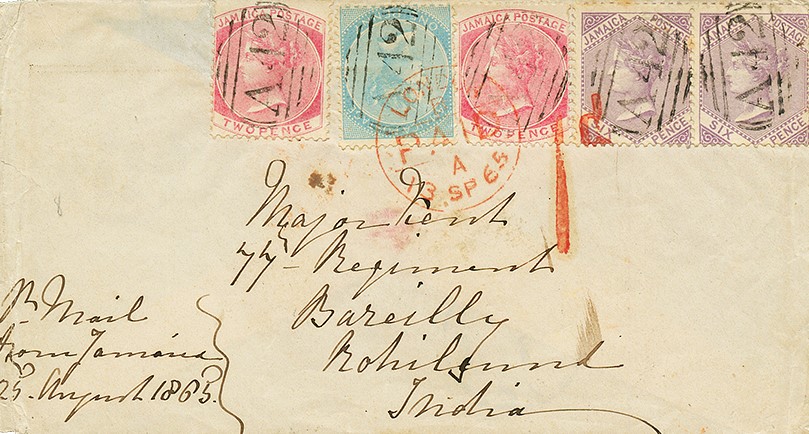 JAMAICA POSTAGE
TWO PENCE
A 42
A 42
JAMAICA POSTAGE
TWO PENCE
A 42
JAMAICA POSTAGE
SIX PENCE
A 42
JAMAICA POSTAGE
SIX PENCE
A 42
A
13 SP 65
1
Major Kent
77th Regiment
Bareilly
Rohilcund
India
Pr Mail
from Jamaica
25 August 1865.
8